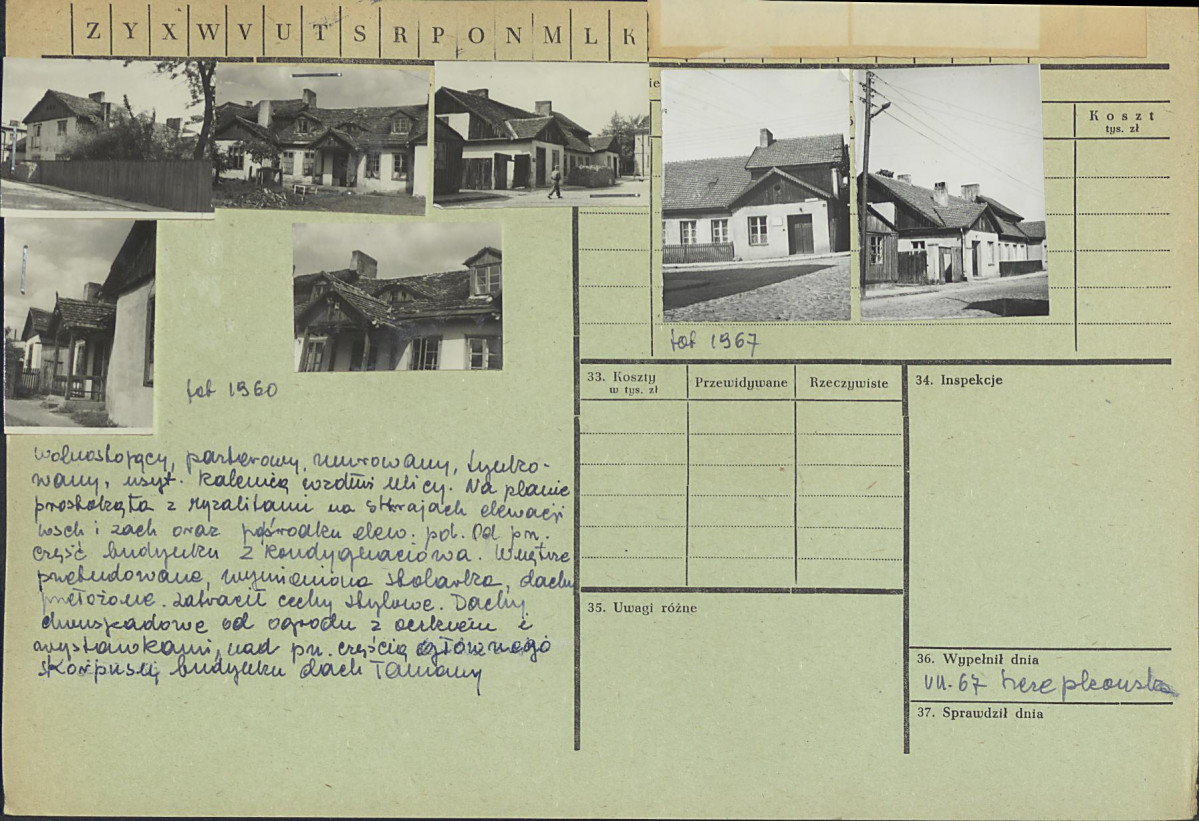 Z Y X W V U T S R P O N M L K
ie
Koszt
tys. zł
fot 1967
fot 1960
wolnostojący, parterowy, murowany, tynko-
wany, usyt. kalenicą wzdłuż ulicy. Na planie
prostokąta z ryzalitami na skrajach elewacji
wsch i zach oraz pośrodku elew. poł. Od pn.
część budynku 2 kondygnaciowa. Wnętrze
przebudowane, wymieniona stolarka, dachy
przełożone. Zatracił cechy stylowe. Dachy
dwuspadowe od ogrodu z
wystawkami, nad pn. częścią głównego
korpusu budynku dach łamany
33. Koszty
w tys. zł
Przewidywane
Rzeczywiste
34. Inspekcje
35. Uwagi różne
36. Wypełnił dnia
VII. 67
37. Sprawdził dnia